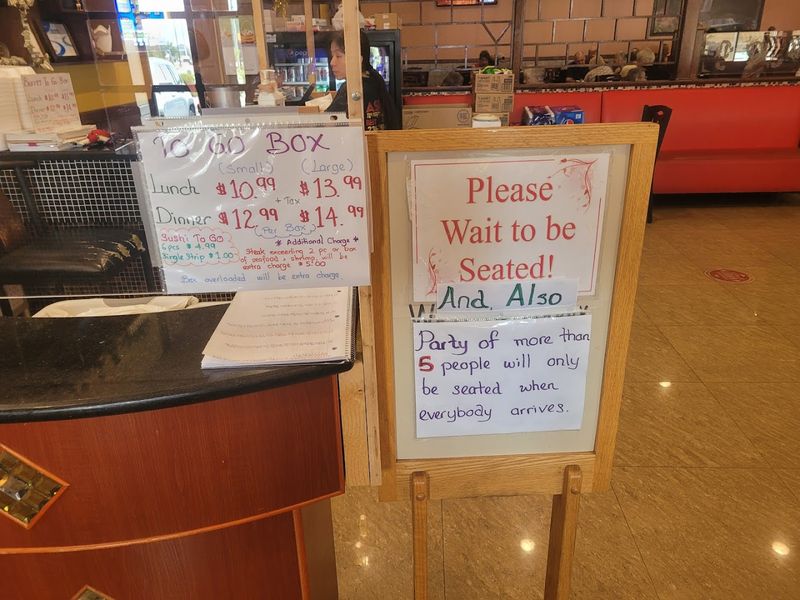 TO GO BOX
(Small) (Large)
Lunch $10.99 $13.99
+ Tax
Dinner $12.99 $14.99
(Per Box)
Sushi To Go
6 pcs $4.99
Single Strip $1.00
* Additional Charge *
Steak exceeding 2 pc or box
of seafood & shrimp, will be
extra charge $5.00
Box overloaded will be extra charge.
Please
Wait to be
Seated!
And, Also
Party of more than
5 people will only
be seated when
everybody arrives.